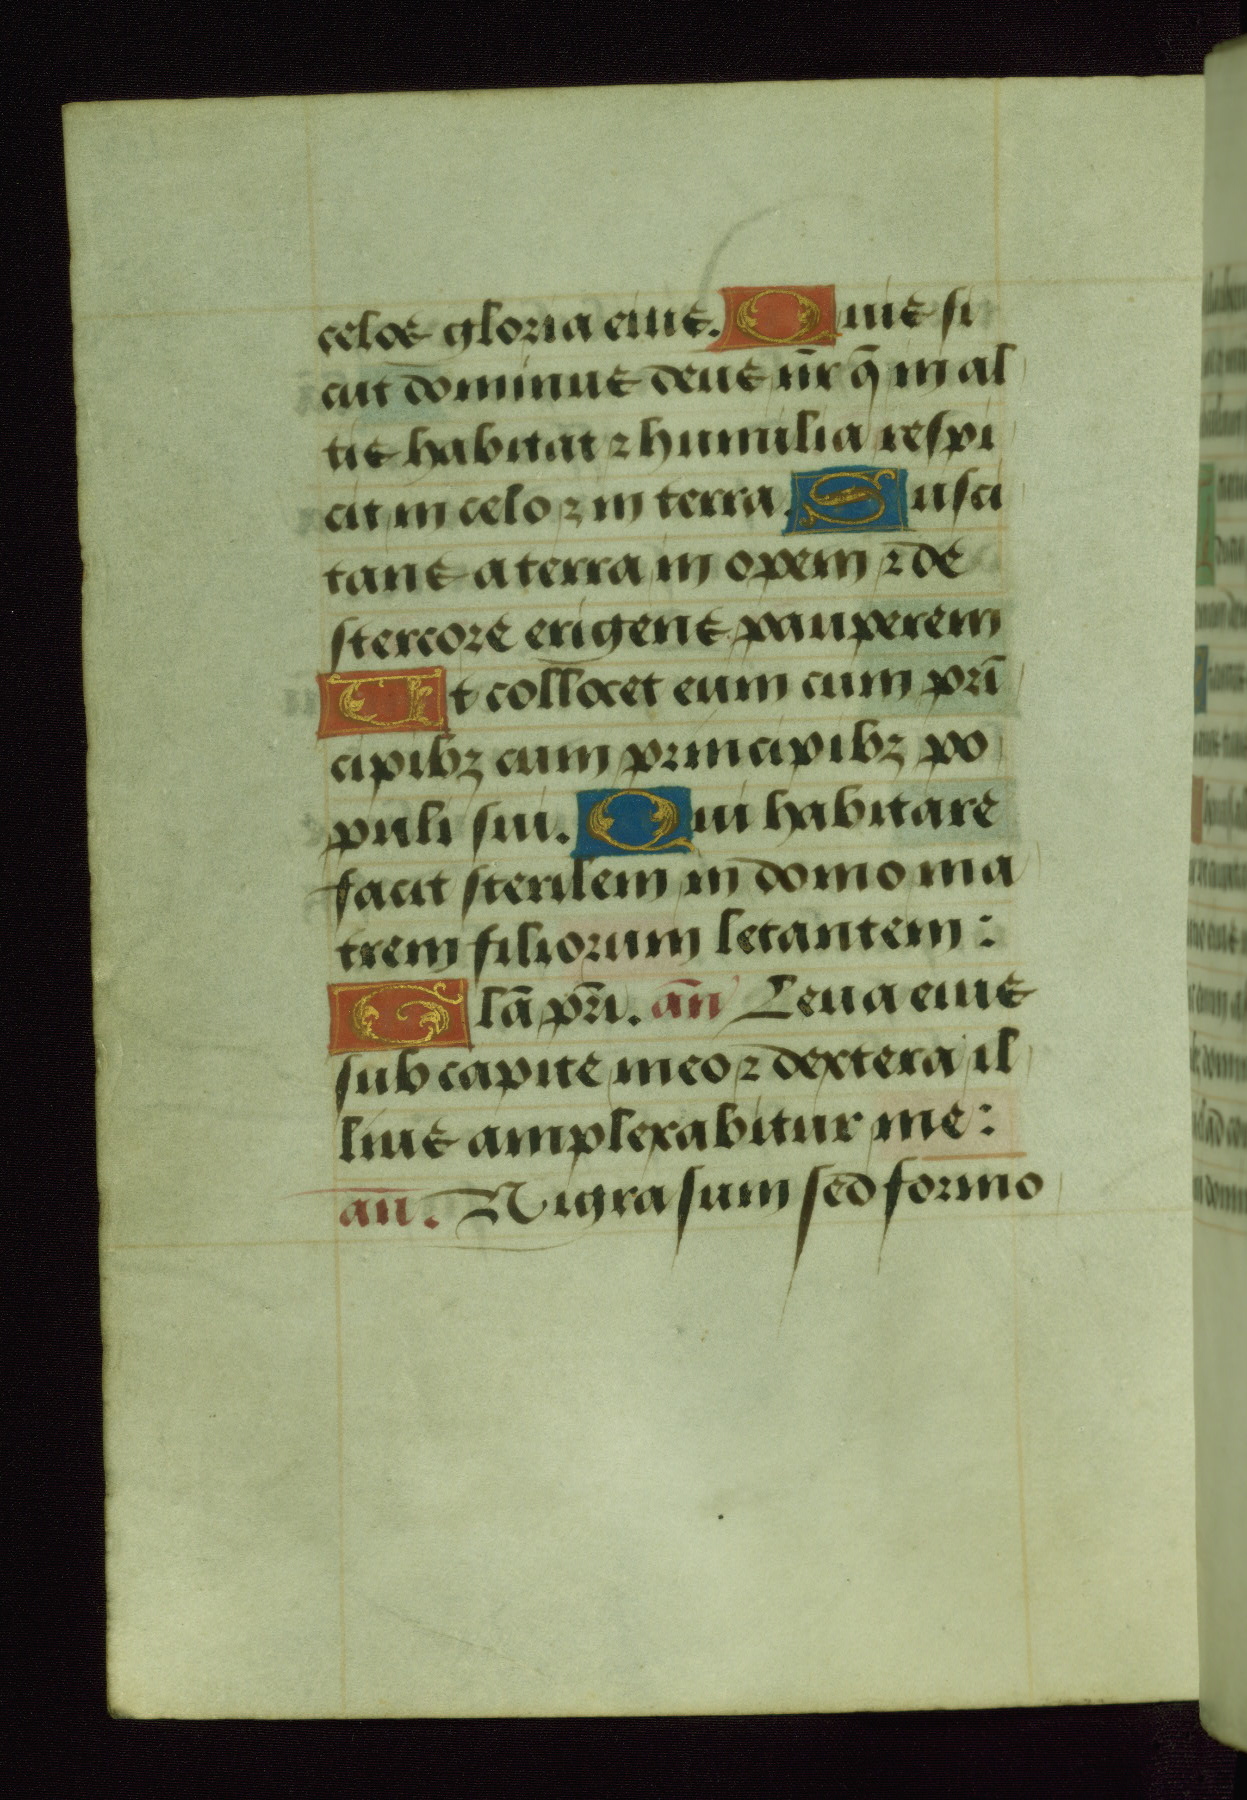 celos gloria eius. Quis si
cut dominus deus nr̄ q̄ in al
tis habitat ⁊ humilia respi
cit in celo ⁊ in terra. Susci
tans a terra in opem ⁊ de
stercore erigens pauperem
Ut collocet eum cum pri̅
cipibꝫ cum principibꝫ po
puli sui. Qui habitare
facit sterilem in domo ma
trem filiorum letantem :
Glā pr̄i. an̄ Leua eius
sub capite meo ⁊ dextera il
lius amplexabitur me :
an̄. Nigra sum sed formo